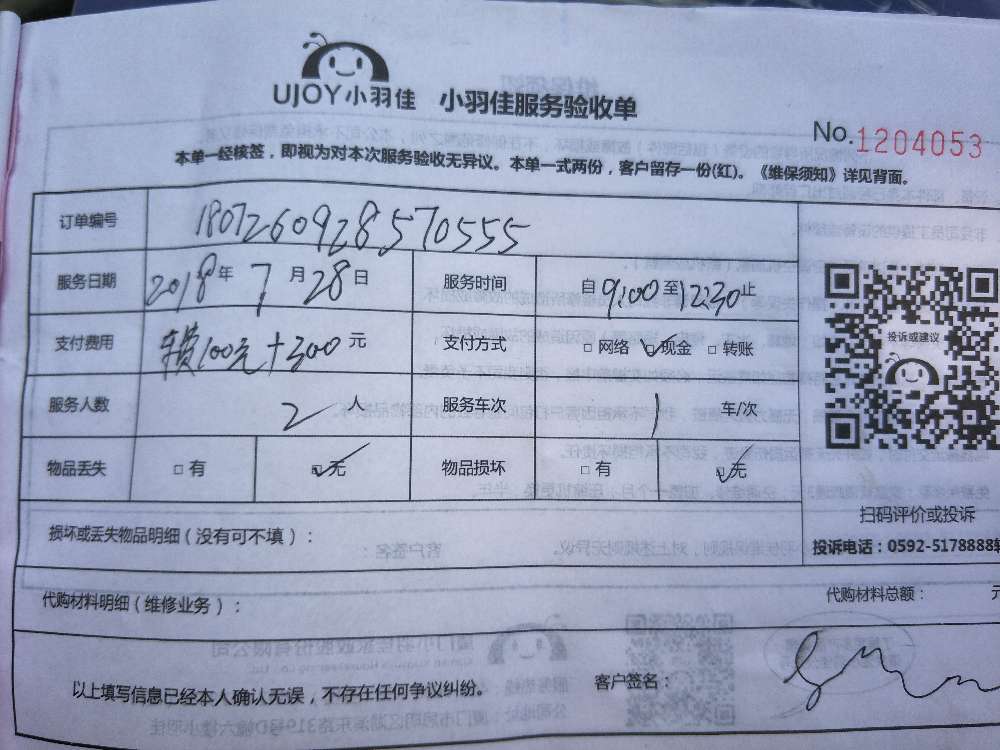 UJOY小羽佳 小羽佳服务验收单
No.1204053
本单一经核签，即视为对本次服务验收无异议。本单一式两份，客户留存一份(红)。《维保须知》详见背面。
订单编号 1807260928570555
服务日期 2018年7月28日 服务时间 自9:00至12:30止
支付费用 100元+300元 支付方式 □网络 ☑现金 □转账
服务人数 2人 服务车次 1车/次
物品丢失 □有 ☑无 物品损坏 □有 ☑无
投诉或建议
扫码评价或投诉
投诉电话：0592-5178888转
损坏或丢失物品明细(没有可不填)：
代购材料明细(维修业务)：
代购材料总额： 元
以上填写信息已经本人确认无误，不存在任何争议纠纷。 客户签名：